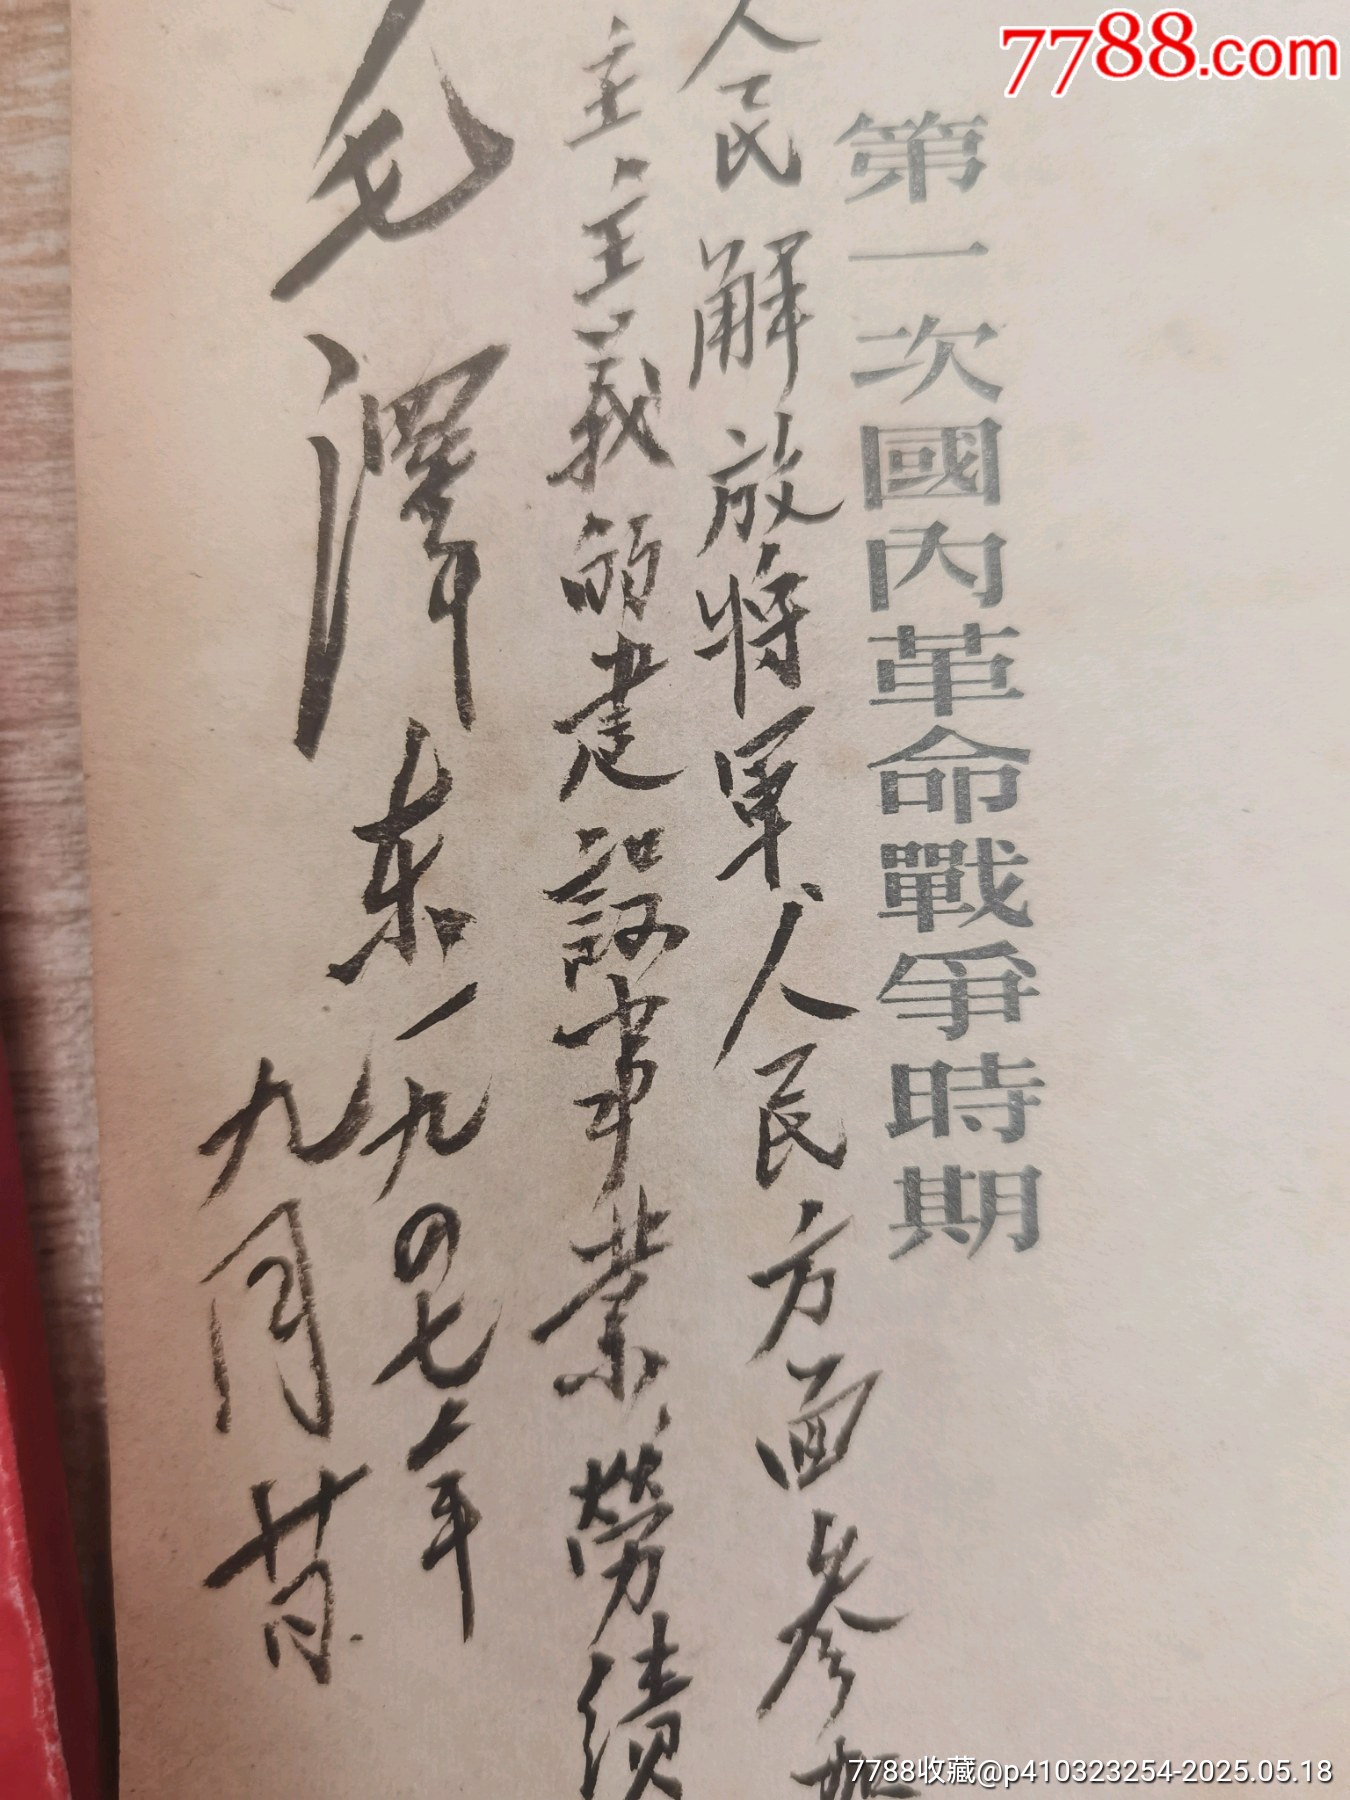 7788.com
第一次國內革命戰爭時期
人民解放将軍、人民方面参加
主主義的建設事業、勞績
毛澤东一九四七年
九月廿日
7788收藏@p410323254-2025.05.18